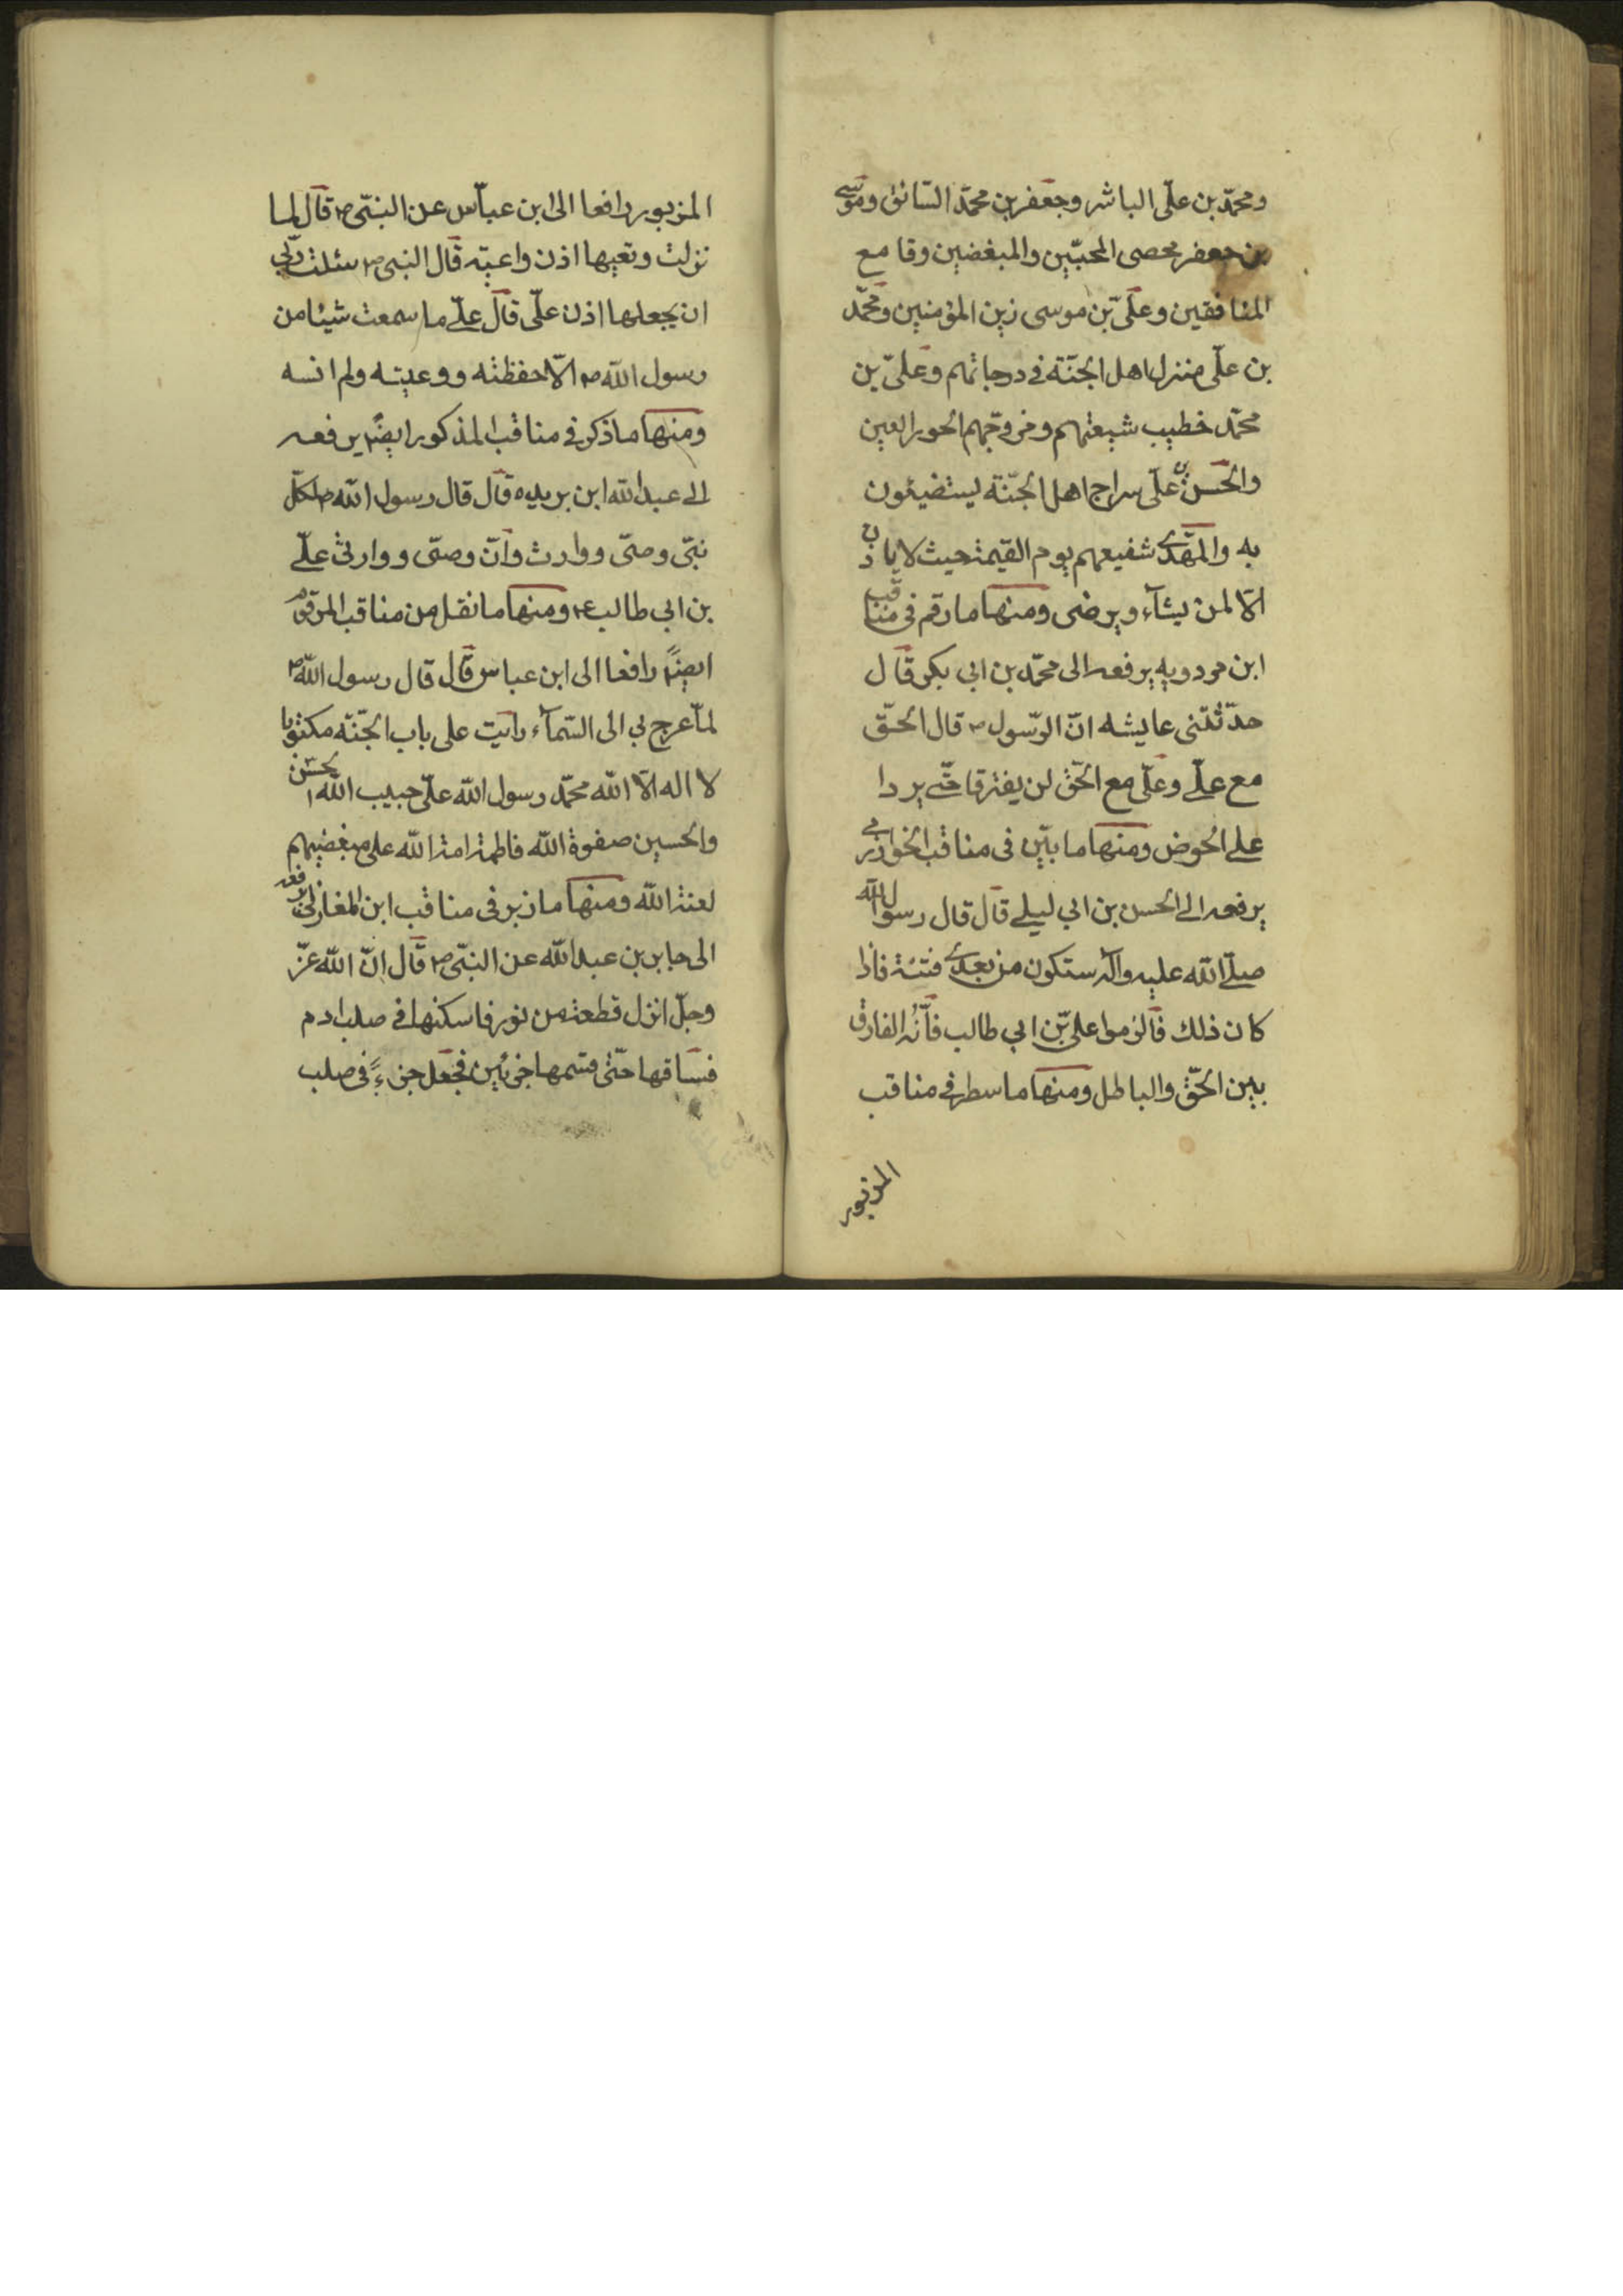 ومحمّد بن علّى الباشر وجعفر بن محمّد السّائق وموسى
بن جعفر محصى المحبّين والمبغضين وقامع
المنافقين وعلىّ بن موسى زين المؤمنين ومحمّد
بن علّى منزل اهل الجنّة فى درجاتهم وعلىّ بن
محمّد خطيب شيعتهم ومزوّجهم الحور العين
والحسن بن علّى سراج اهل الجنّة يستضيئون
به والمهدى شفيعهم يوم القيمة حيث لا ياذن
الّا لمن يشآء ويرضى ومنها ما رقم فى مناقب
ابن مردويه يرفعه الى محمّد بن ابى بكر قال
حدّثتنى عايشه انّ الرّسول ص قال الحّق
مع علّى وعلّى مع الحّق لن يفترقا حتّى يردا
على الحوض ومنها ما بيّن فى مناقب الخوارزمى
يرفعه الى الحسن بن ابى ليلى قال قال رسول الله
صلّى الله عليه وآله ستكون من بعدى فتنة فاذا
كان ذلك فالزموا علىّ بن ابى طالب فأنّه الفارق
بين الحّق والباطل ومنها ما سطر فى مناقب
المزبور
المزبور رافعا الى ابن عبّاس عن النبّى ص قال لما
نزلت وتعيها اذن واعيته قال النبى ص سئلت ربّى
ان يجعلها اذن علّى قال علّى ما سمعت شيئا من
رسول الله ص الّا حفظته ووعيته ولم انسه
ومنها ما ذكر فى مناقب المذكور ايضًا يرفعه
الى عبد الله ابن بريده قال قال رسول الله ص لكلّ
نبّى وصّى ووارث وانّ وصّى ووارثى علّى
بن ابى طالب ع ومنها ما نقل من مناقب المرقوم
ايضًا رافعا الى ابن عباس قال قال رسول الله ص
لمّا عرج بى الى السّمآء رايت على باب الجنّه مكتوبا
لا اله الّا الله محمّد رسول الله علّى حبيب الله الحسن
والحسين صفوة الله فاطمة امة الله على مبغضيهم
لعنة الله ومنها ما زبر فى مناقب ابن المغازلى يرفعه
الى جابر بن عبد الله عن النبّى ص قال انّ الله عزّ
وجلّ انزل قطعة من نور فاسكنها فى صلب ادم
فساقها حتّى قسمها جزئين فجعل جزءً فى صلب